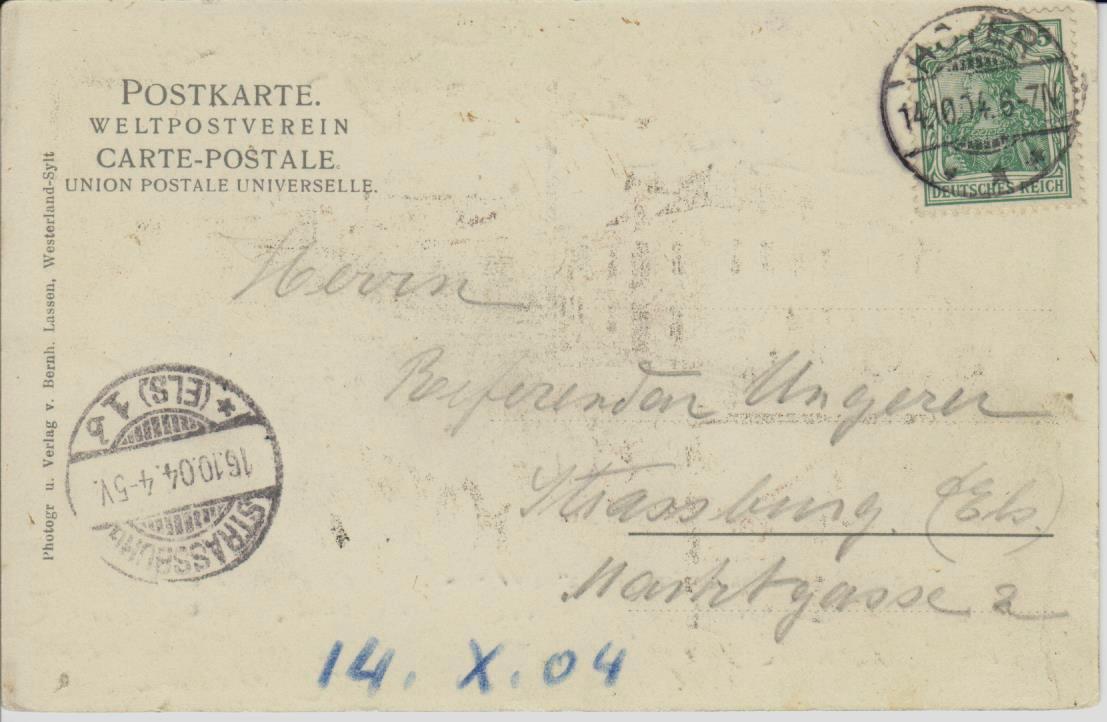 POSTKARTE.
WELTPOSTVEREIN
CARTE-POSTALE.
UNION POSTALE UNIVERSELLE.
Photogr u. Verlag v. Bernh. Lassen, Westerland-Sylt
5
14.10.04. 6-7N
DEUTSCHES REICH
Herrn
Referendar Ungerer
Strassburg (Els.)
Marktgasse 2
STRASSBURG
16.10.04. 4-5V.
* (ELS) 1 b
14. X. 04